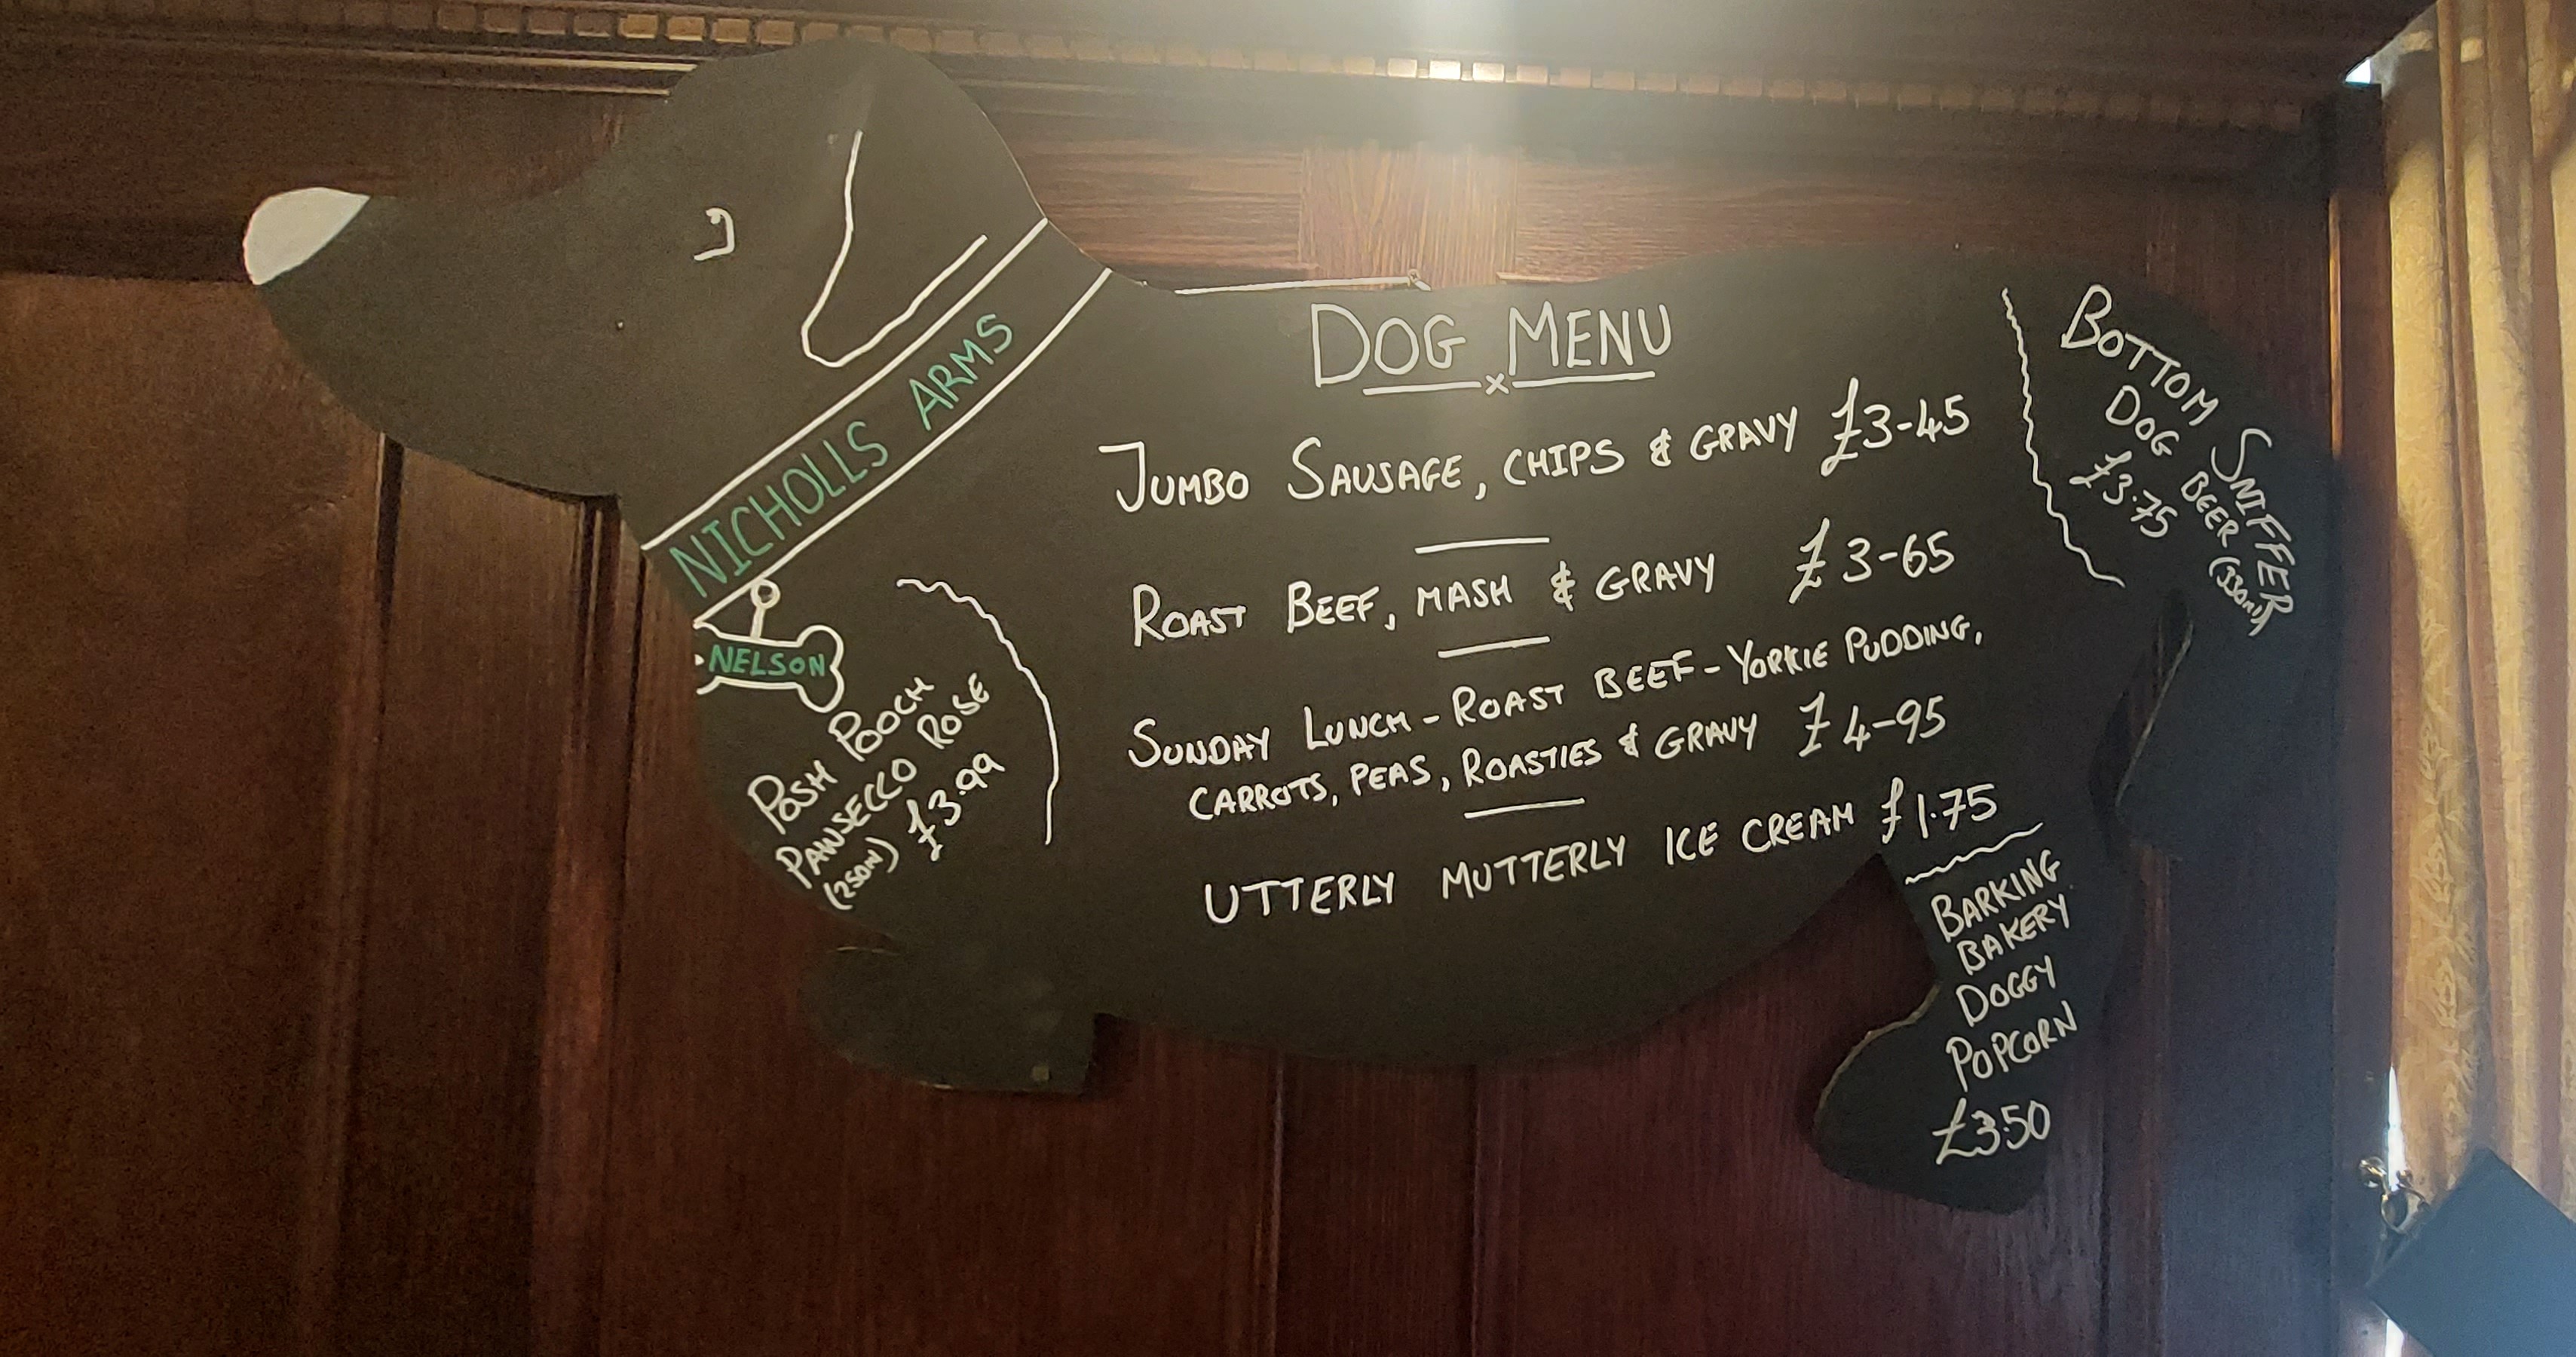 NICHOLLS ARMS
NELSON
POSH POOCH
PAWSECCO ROSE
(250ml) £3.99
DOG MENU
JUMBO SAUSAGE, CHIPS & GRAVY £3-45
ROAST BEEF, MASH & GRAVY £3-65
SUNDAY LUNCH - ROAST BEEF - YORKIE PUDDING,
CARROTS, PEAS, ROASTIES & GRAVY £4-95
UTTERLY MUTTERLY ICE CREAM £1.75
BOTTOM SNIFFER
DOG BEER (330ml)
£3.75
BARKING
BAKERY
DOGGY
POPCORN
£3.50